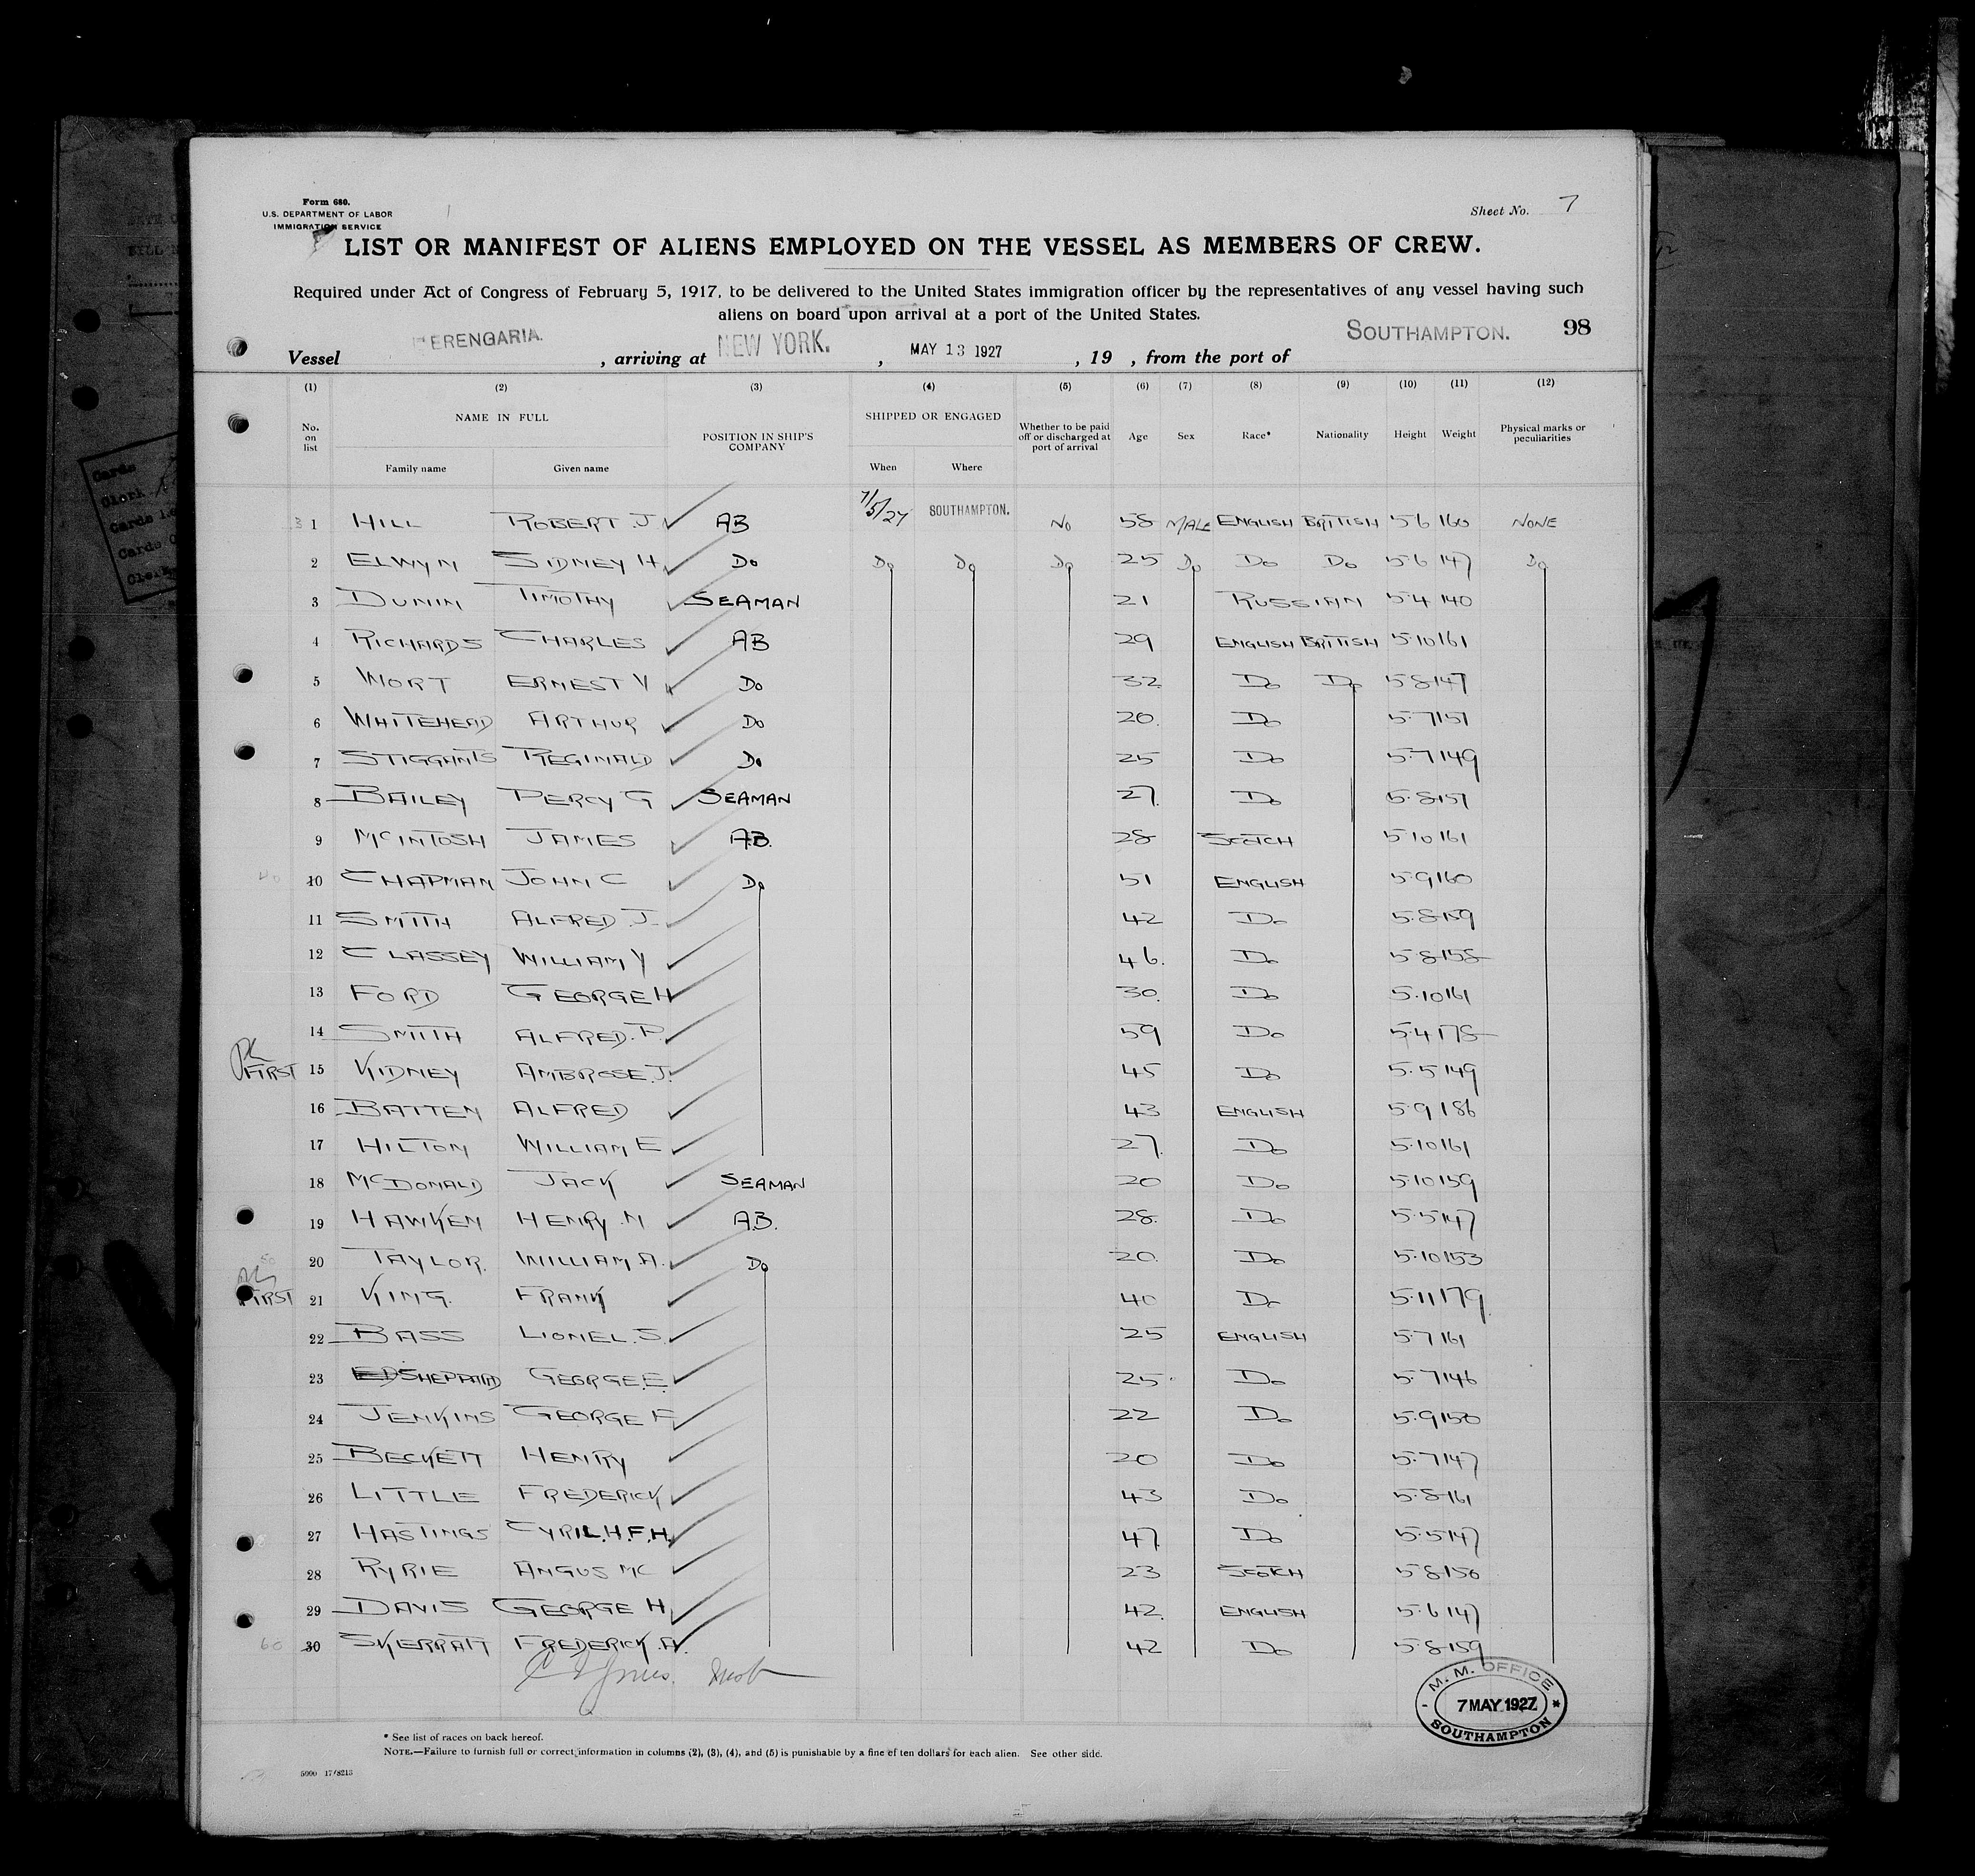 Form 680.
U.S. DEPARTMENT OF LABOR
IMMIGRATION SERVICE
Sheet No. 7
LIST OR MANIFEST OF ALIENS EMPLOYED ON THE VESSEL AS MEMBERS OF CREW.
Required under Act of Congress of February 5, 1917, to be delivered to the United States immigration officer by the representatives of any vessel having such
aliens on board upon arrival at a port of the United States.
98
Vessel ERENGARIA. , arriving at NEW YORK. , MAY 13 1927 , 19 , from the port of SOUTHAMPTON.
(1) (2) (3) (4) (5) (6) (7) (8) (9) (10) (11) (12)
No. on list NAME IN FULL Family name Given name POSITION IN SHIP'S COMPANY SHIPPED OR ENGAGED When Where Whether to be paid off or discharged at port of arrival Age Sex Race* Nationality Height Weight Physical marks or peculiarities
1 HILL ROBERT J AB 7/5/27 SOUTHAMPTON. NO 58 MALE ENGLISH BRITISH 5 6 160 NONE
2 ELWYN SIDNEY H. DO DO DO DO 25 DO DO DO 5 6 147 DO
3 DUNIN TIMOTHY SEAMAN 21 RUSSIAN 5 4 140
4 RICHARDS CHARLES AB 29 ENGLISH BRITISH 5 10 161
5 WORT ERNEST V DO 32 DO DO 5 8 147
6 WHITEHEAD ARTHUR DO 20. DO 5.7 151
7 STIGGANTS REGINALD DO 25 DO 5.7 149
8 BAILEY PERCY G SEAMAN 27. DO 5.8 151
9 MCINTOSH JAMES AB. 28 SCOTCH 5 10 161
10 CHAPMAN JOHN C DO 51 ENGLISH 5.9 160
11 SMITH ALFRED J. 42 DO 5.8 159
12 CLASSEY WILLIAM V 46. DO 5.8 158
13 FORD GEORGE H 30. DO 5.10 161
14 SMITH ALFRED. P. 59 DO 5.4 178
FIRST 15 KIDNEY AMBROSE. J. 45 DO 5.5 149
16 BATTEN ALFRED 43 ENGLISH 5.9 186
17 HILTON WILLIAM E 27. DO 5.10 161
18 MCDONALD JACK SEAMAN 20 DO 5.10 159
19 HAWKEN HENRY. M A.B. 28. DO 5.5 147
20 TAYLOR. WILLIAM. A. DO 20. DO 5.10 153
FIRST 21 KING. FRANK 40 DO 5.11 179
22 BASS LIONEL. S. 25 ENGLISH 5.7 161
23 SHEPPARD GEORGE. E. 25 DO 5.7 146
24 JENKINS GEORGE F 22 DO 5.9 150
25 BECKETT HENRY 20 DO 5.7 147
26 LITTLE FREDERICK 43 DO 5.8 161
27 HASTINGS CYRIL. H. F. H. 47. DO 5.5 147
28 RYRIE ANGUS MC 23 SCOTCH 5 8 150
29 DAVIS GEORGE H. 42. ENGLISH 5.6 147
60 30 SKERRATT FREDERICK. A. 42 DO 5.8 159
M. M. OFFICE
7 MAY 1927
SOUTHAMPTON
* See list of races on back hereof.
NOTE.—Failure to furnish full or correct information in columns (2), (3), (4), and (5) is punishable by a fine of ten dollars for each alien. See other side.